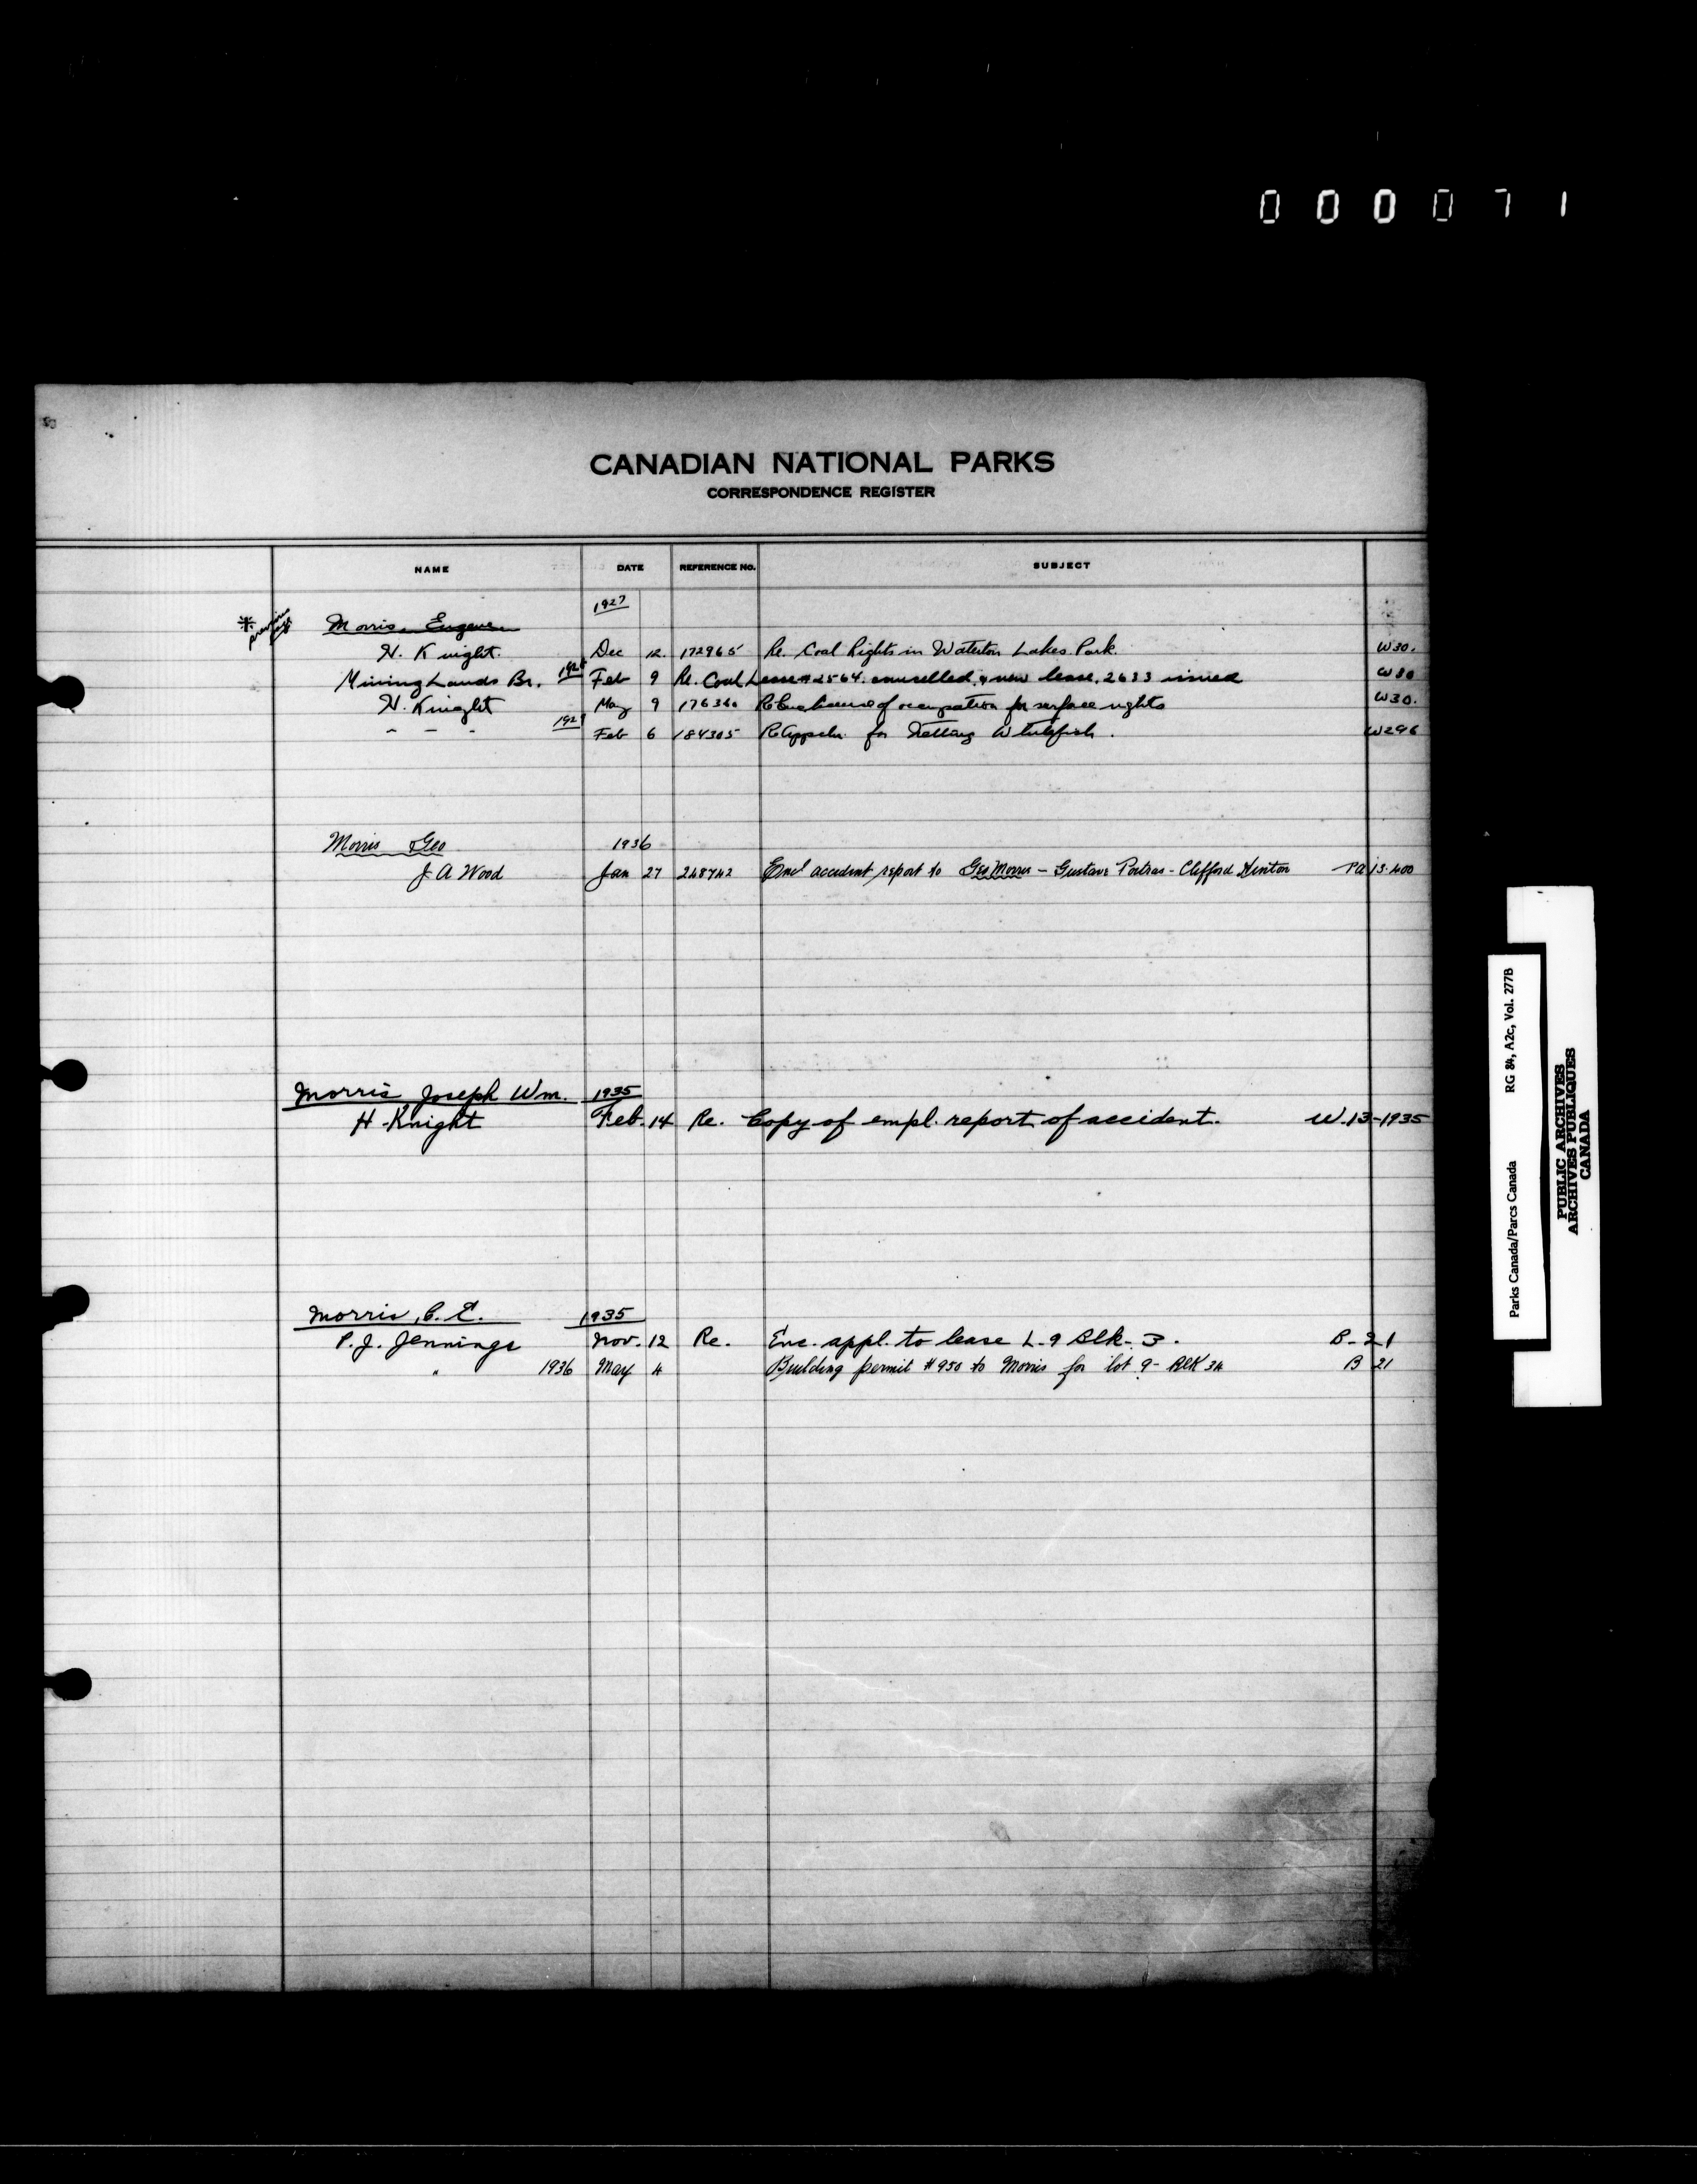 000071
CANADIAN NATIONAL PARKS
CORRESPONDENCE REGISTER
NAME DATE REFERENCE No. SUBJECT
1927
* Morris, Eugene
H. Knight. Dec 12. 172965 Re. Coal Rights in Waterton Lakes Park. W30.
Mining Lands Br. 1928 Feb 9 Re. Coal Lease #2564. cancelled, & new lease. 2633 issued W30
H. Knight May 9 of occupation for surface rights W30.
" " " 1929 Feb 6 184305 for Netting Whitefish. W296
Morris Geo 1936
J A Wood Jan 27 248742 Encl accident report to Geo Morris - Gustave Poitras - Clifford Hinton PA 13-400
Morris Joseph Wm. 1935
H. Knight Feb. 14 Re. Copy of empl. report of accident. W.13-1935
Morris, C. E. 1935
P. J. Jennings Nov. 12 Re. Enc. appl. to lease L-9 Blk-3. B-21
" 1936 May 4 Building permit #950 to Morris for lot 9 - Blk 34 B 21
Parks Canada/Parcs Canada RG 84, A2c, Vol. 277B
PUBLIC ARCHIVES
ARCHIVES PUBLIQUES
CANADA